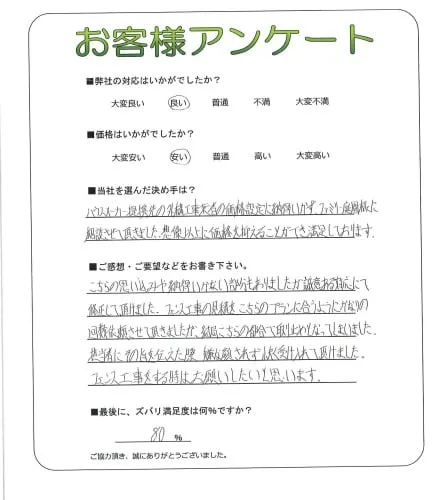 お客様アンケート
■弊社の対応はいかがでしたか？
大変良い 良い 普通 不満 大変不満
■価格はいかがでしたか？
大変安い 安い 普通 高い 大変高い
■当社を選んだ決め手は？
ハウスメーカー提携先の外構工事業者の価格設定に納得いかず、ファミリー庭園様に
相談させて頂きました。想像以上に価格を抑えることができ満足しております。
■ご感想・ご要望などをお書き下さい。
こちらの思い込みや納得いかない部分もありましたが誠意ある対応にて
修正して頂けました。フェンス工事の見積をこちらのプランに合うようにかなりの
回数依頼させて頂きましたが、結局こちらの都合で取り止めとなってしまいました。
担当者にその旨を伝えた際、嫌な顔されず快く受け入れて頂けました。
フェンス工事をする時は大願いしたいと思います。
■最後に、ズバリ満足度は何％ですか？
80 ％
ご協力頂き、誠にありがとうございました。